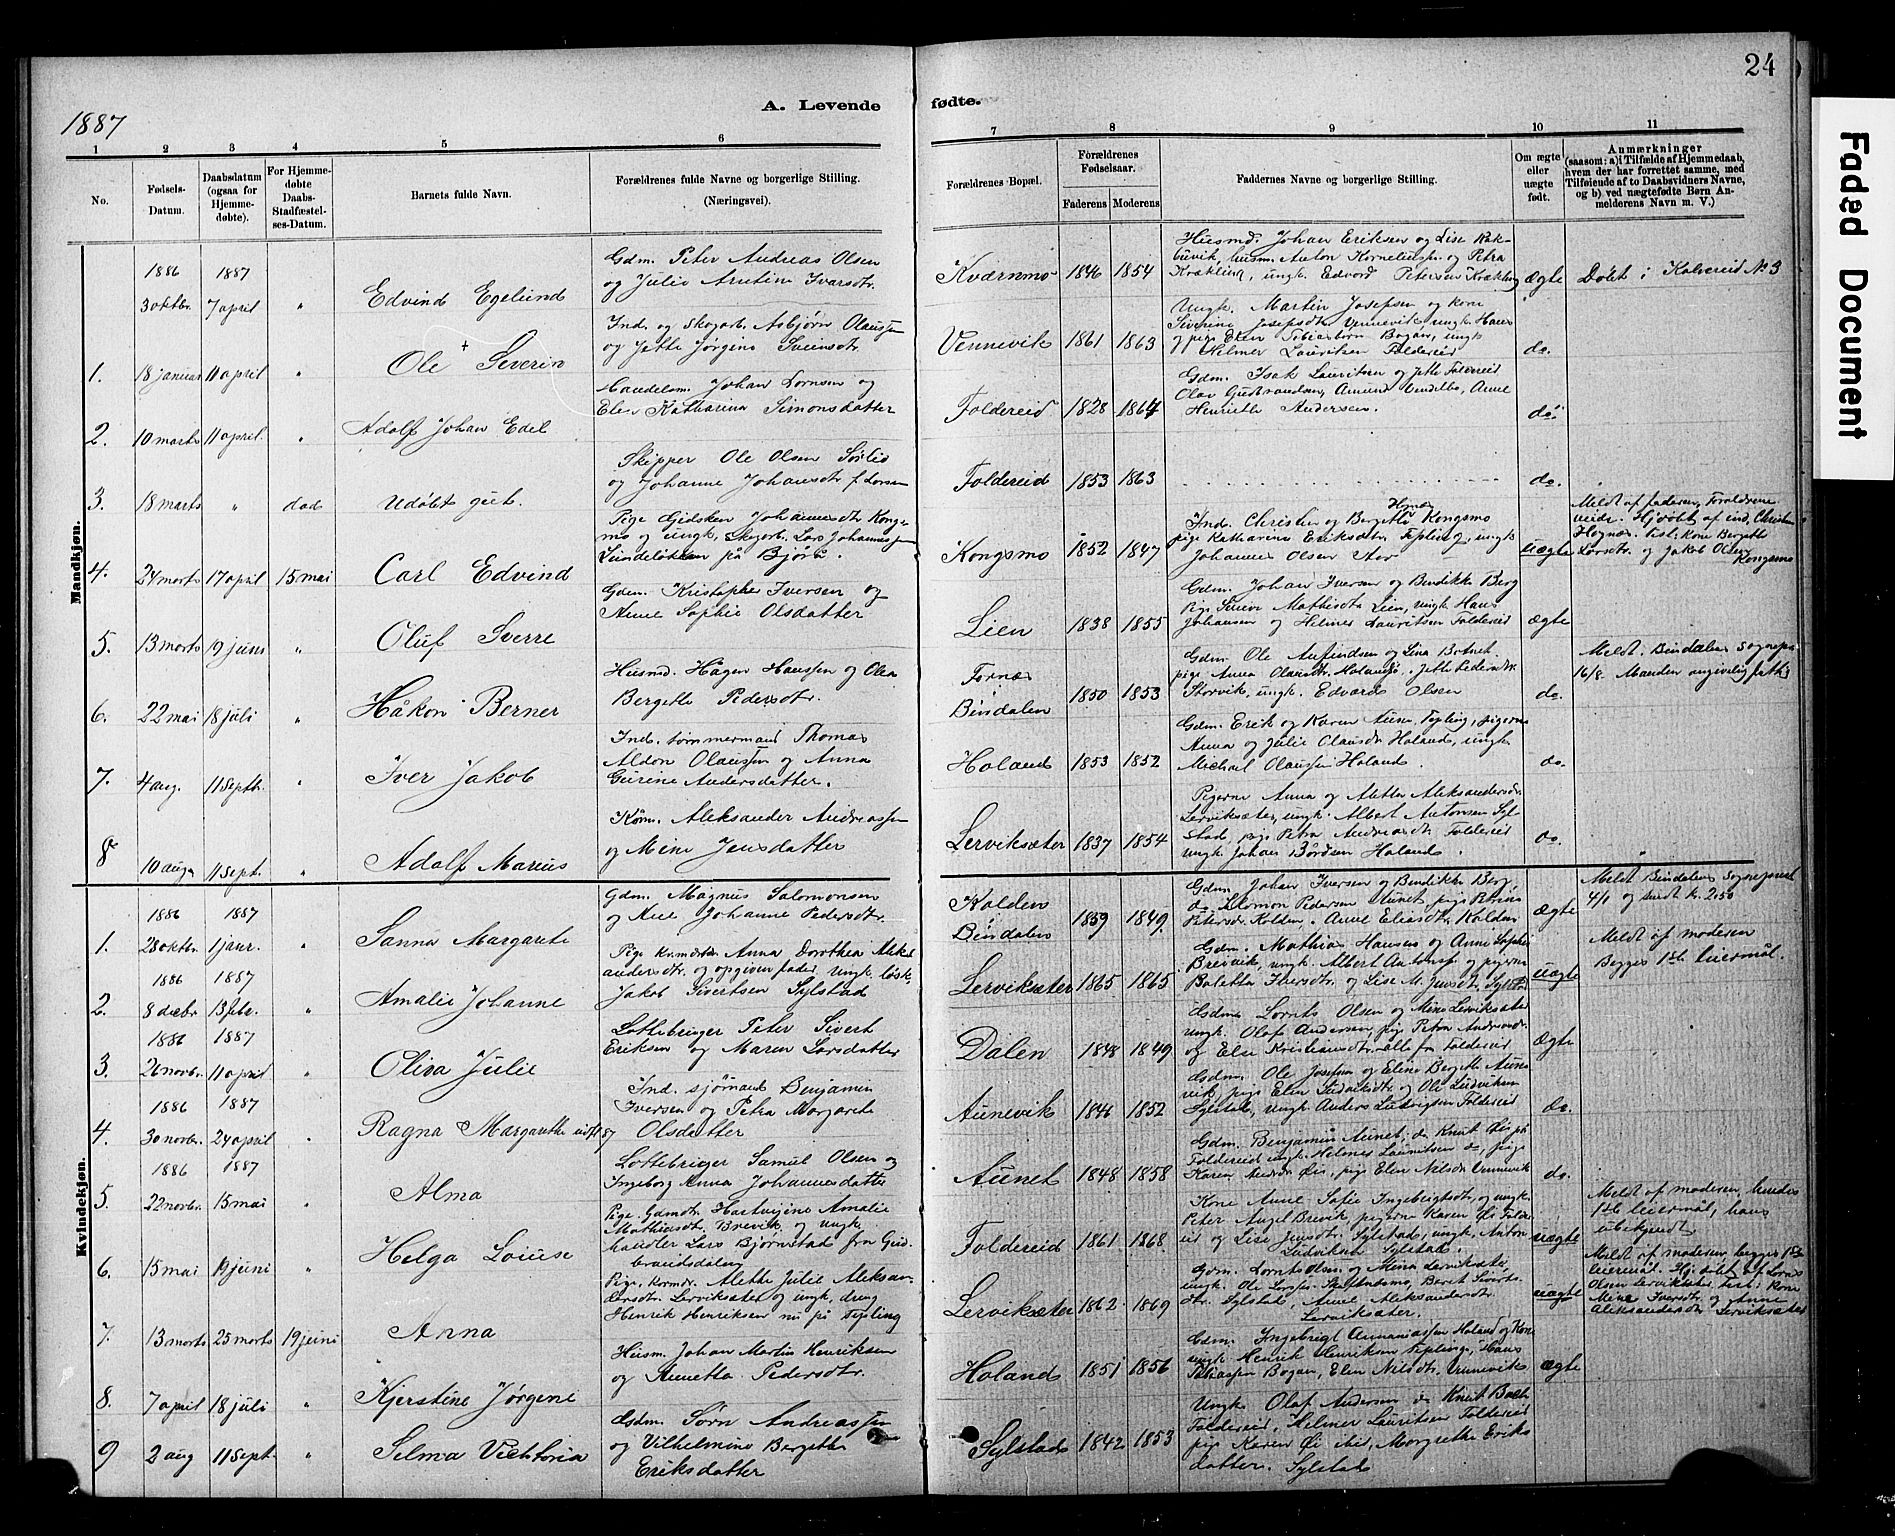 24
1887
A. Levende fødte.
Faded Document
1 2 3 4 5 6 7 8 9 10 11
No.
Fødsels-Datum.
Daabsdatum (ogsaa for Hjemmedøbte).
For Hjemmedøbte Daabs-Stadfæstelses-Datum.
Barnets fulde Navn.
Forældrenes fulde Navne og borgerlige Stilling. (Næringsvei).
Forældrenes Bopæl.
Forældrenes Fødselsaar.
Faderens Moderens
Faddernes Navne og borgerlige Stilling.
Om ægte eller uægte født.
Anmærkninger
(saasom: a) i Tilfælde af Hjemmedaab, hvem der har forrettet samme, med Tilføiende af to Daabsvidners Navne, og b) ved uægtefødte Børn Anmelderens Navn m. V.)
Mandkjøn.
1886 1887
3 oktbr. 7 april " Edvind Egelund
Gdm. Peter Andreas Olsen
og Julie Ivarsdtr.
Kværnmo 1846 1854
Husmd. Johan Eriksen og Lise
husm. Anton Korneliussn. og Petra
Krækling, ungk. Edvord Petersen Krækling
ægte
Døbt i Kolvereid No 3
1. 18 januar 11 april " Ole Severin
Ind. og Skogarb. Asbjørn Olaussen
og Jette Jørgine Sveinsdtr.
Vennevik 1861 1863
Ungk. Martin Josefsen og kone
Siverine Josefsdtr. Vennevik, ungk. Hans
og pige Elen Bogan, ungk.
Helmer Lauritsen Foldereid
do.
2. 10 marts 11 april. " Adolf Johan Edel
Handelsm. Johan Lornsen og
Elen Katharina Simonsdatter
Foldereid 1828 1864
Gdm. Isak Lauritsen og Jette Foldereid
Olav Gudbrandsen, Amund Vendelbo, Anne
Henriette Andersen.
do.
3. 18 marts " død Udøbt gut.
Skipper Ole Olsen Sørlid
og Johanne Johansdtr f. Lorsen
Foldereid 1853 1863
do.
4. 24 marts 17 april 15 mai Carl Edvind
Pige Gidsken Johannesdtr Kongsmo
og ungk. Skogarb. Lars Johannessen
på Bjørå.
Kongsmo 1852 1847
Ind. Christen og Bergette Kongsmo
pige Katharina Eriksdtr. Tepling, ungk.
Johannes Olsen Aar
uægte
Meldt af faderen, Foreldrene
Hjdøbt af ind. Christen
Høgnæs. Test. Kone Bergette
Larsdtr. og Jakob Olsen
Kongsmo
5. 13 marts 19 juni " Oluf Sverre
Gdm. Kristopher Iversen og
Anne Sophie Olsdatter
Lien 1838 1855
Gdm. Johan Iversen og Bendikke Berg
Pige Mathisdtr Lien, ungk. Hans
Johansen og Helmer Lauritsen Foldereid
ægte
6. 22 mai 18 juli " Håkon Berner
Husmd. Hågen Hanssen og Olea
Bergette Pedersdtr.
Fornæs
Bindalen 1850 1853
Gdm. Ole Anfindsen og Lena Botnet.
pige Anna Olausdtr. Holandsø. Jette Pedersdtr.
Storvik, ungk. Edvards Olsen
do.
Meldt. Bindalens Sognepr.
16/8. Manden angivelig fattig
7. 4 aug. 11 septbr. " Iver Jakob
Ind. tømmermand Thomas
Aldon Olaussen og Anna
Gurine Andersdatter.
Holand 1853 1852
Gdm. Erik og Karen Aune, Tepling, pigerne
Anna og Julie Olausdtr Holand, ungk.
Michael Olaussen Holand.
do.
8 10 aug. 11 sept. " Adolf Marius
Køm. Aleksander Andreassen
og Mine Jensdatter
Lerviksæter 1837 1854
Pigerne Anna og Aletta Aleksandersdtr.
Lerviksæter, ungk. Albert Antonsen Sylstad,
pige Petra Andreasdtr. Foldereid
ungk. Johan Bårdsen Holand.
do.
Kvindekjøn.
1886 1887
1. 28 oktbr. 1 januar. " Sanna Margarete
Gdm. Magnus Salomonsen
og Ane Johanne Pedersdtr.
Kolden
Bindalen 1859 1849
Gdm. Johan Iversen og Bendikke Berg,
do. Salomon Pedersen Aunet, pige Petrine
Petersdr. Kolden, Anne Eliasdtr. Kolden
ægte
Meldt Bindalens Sognepræst
4/1 og sendt kr. 2.50
1886 1887
2. 8 decbr. 13 febr. " Amalie Johanne
Pige Anna Dorothea Aleksandersdtr.
og opgiven fader, ungk. løsk.
Jakob Sivertsen Sylstad
Lerviksæter 1865 1865
Gdm. Mathias Hansen og Anne Sophie
Breivik, ungk. Albert Antonsen og pigerne
Iversdtr. og Lise M. Jensdtr. Sylstad
uægte
Meldt af moderen
Begges 1ste leiermål.
1886 1887
3. 26 novbr. 11 april " Oliva Julie
Lottebruger Peter Sivert
Eriksen og Maren Larsdatter
Dalen 1848 1849
Gdm. Lornts Olsen og Mine Lerviksæter
ungk. Olaf Andersen, pige Petra Andreasdr.
og Else Kristiansdtr. alle fra Foldereid
ægte
1886 1887
4. 30 novbr. 24 april " Ragna Margarethe
Ind. sjømand Benjamin
Iversen og Petra Margarete
Olsdatter
Aunevik 1846 1852
Gdm. Ole Josefsen og Eline Bergete Aunevik
pige Elen Ludviksdtr. og Ole Ludviksen
Sylstad, ungk. Anders Ludvigsen Foldereid
do.
1886 1887
5. 22 novbr. 15 mai " Alma
Lottebruger Samuel Olsen og
Ingeborg Anna Johannesdatter
Aunet 1848 1858
Gdm. Benjamin Aunet, do Knut Øie på
Foldereid ungk. Helmer Lauritsen do, pige
Karen Øie, pige Elen Nilsdr Vennevik
do.
6. 15 mai 19 juni " Helga Loiuse
Pige. Gdmdtr. Hartvigine Amalie
Mathiasdtr. Brevik og ungk.
handler Lars Bjørnstad fra Gudbrandsdalen
Foldereid 1861 1868
Kone Anne Sofie Ingebrigtsdtr, og ungk.
Peter Angel Brevik, pigerne Karen Øie Foldereid
og Lise Jensdtr. Sylstad, ungk. Anton
Ludviksen Sylstad.
uægte
Meldt af moderen, hendes
1ste leiermål, hans
ubekjendt.
7. 13 marts 25 marts 19 juni Anna
Pige. Alette Julie Aleksandersdtr.
Lerviksæter og ungk. dreng
Henrik Henriksen nu på Tepling
Lerviksæter 1862 1869
Gdm. Lornts Olsen og Mina Lerviksæter,
ungk. Ole Larsen, Beret Sivertsdtr.
Sylstad, Anne Aleksandersdtr
Lerviksæter.
uægte
Meldt af moderen, begges 1ste
leiermål. Hj. døbt af Lornts
Olsen Lerviksæter, test: kone
Mine Iversdtr. og Anne
Aleksandersdtr. Lerviksæter
8. 7 april 18 juli " Kjerstine Jørgene
Husm. Johan Martin Henriksen
og Anetta Pedersdtr.
Holand 1851 1856
Gdm. Ingebrigt Annaniassen Holand og Kone
ungk Henrik Henriksen Teplings, Hans
Tobiassen Bogan, Elen Nilsdtr. Vennevik
ægte
9 2 aug 11 sept. " Selma Vichtoria
Gdm. Sørn Andreassen
og Vilhelmine Bergette
Eriksdatter
Sylstad 1842 1853
Ungk. Olaf Andersen do Knut
Foldereid, Helmer Lauritsen Foldereid
pige Karen Øie ibd, Margrethe Eriksdatter.
Sylstad